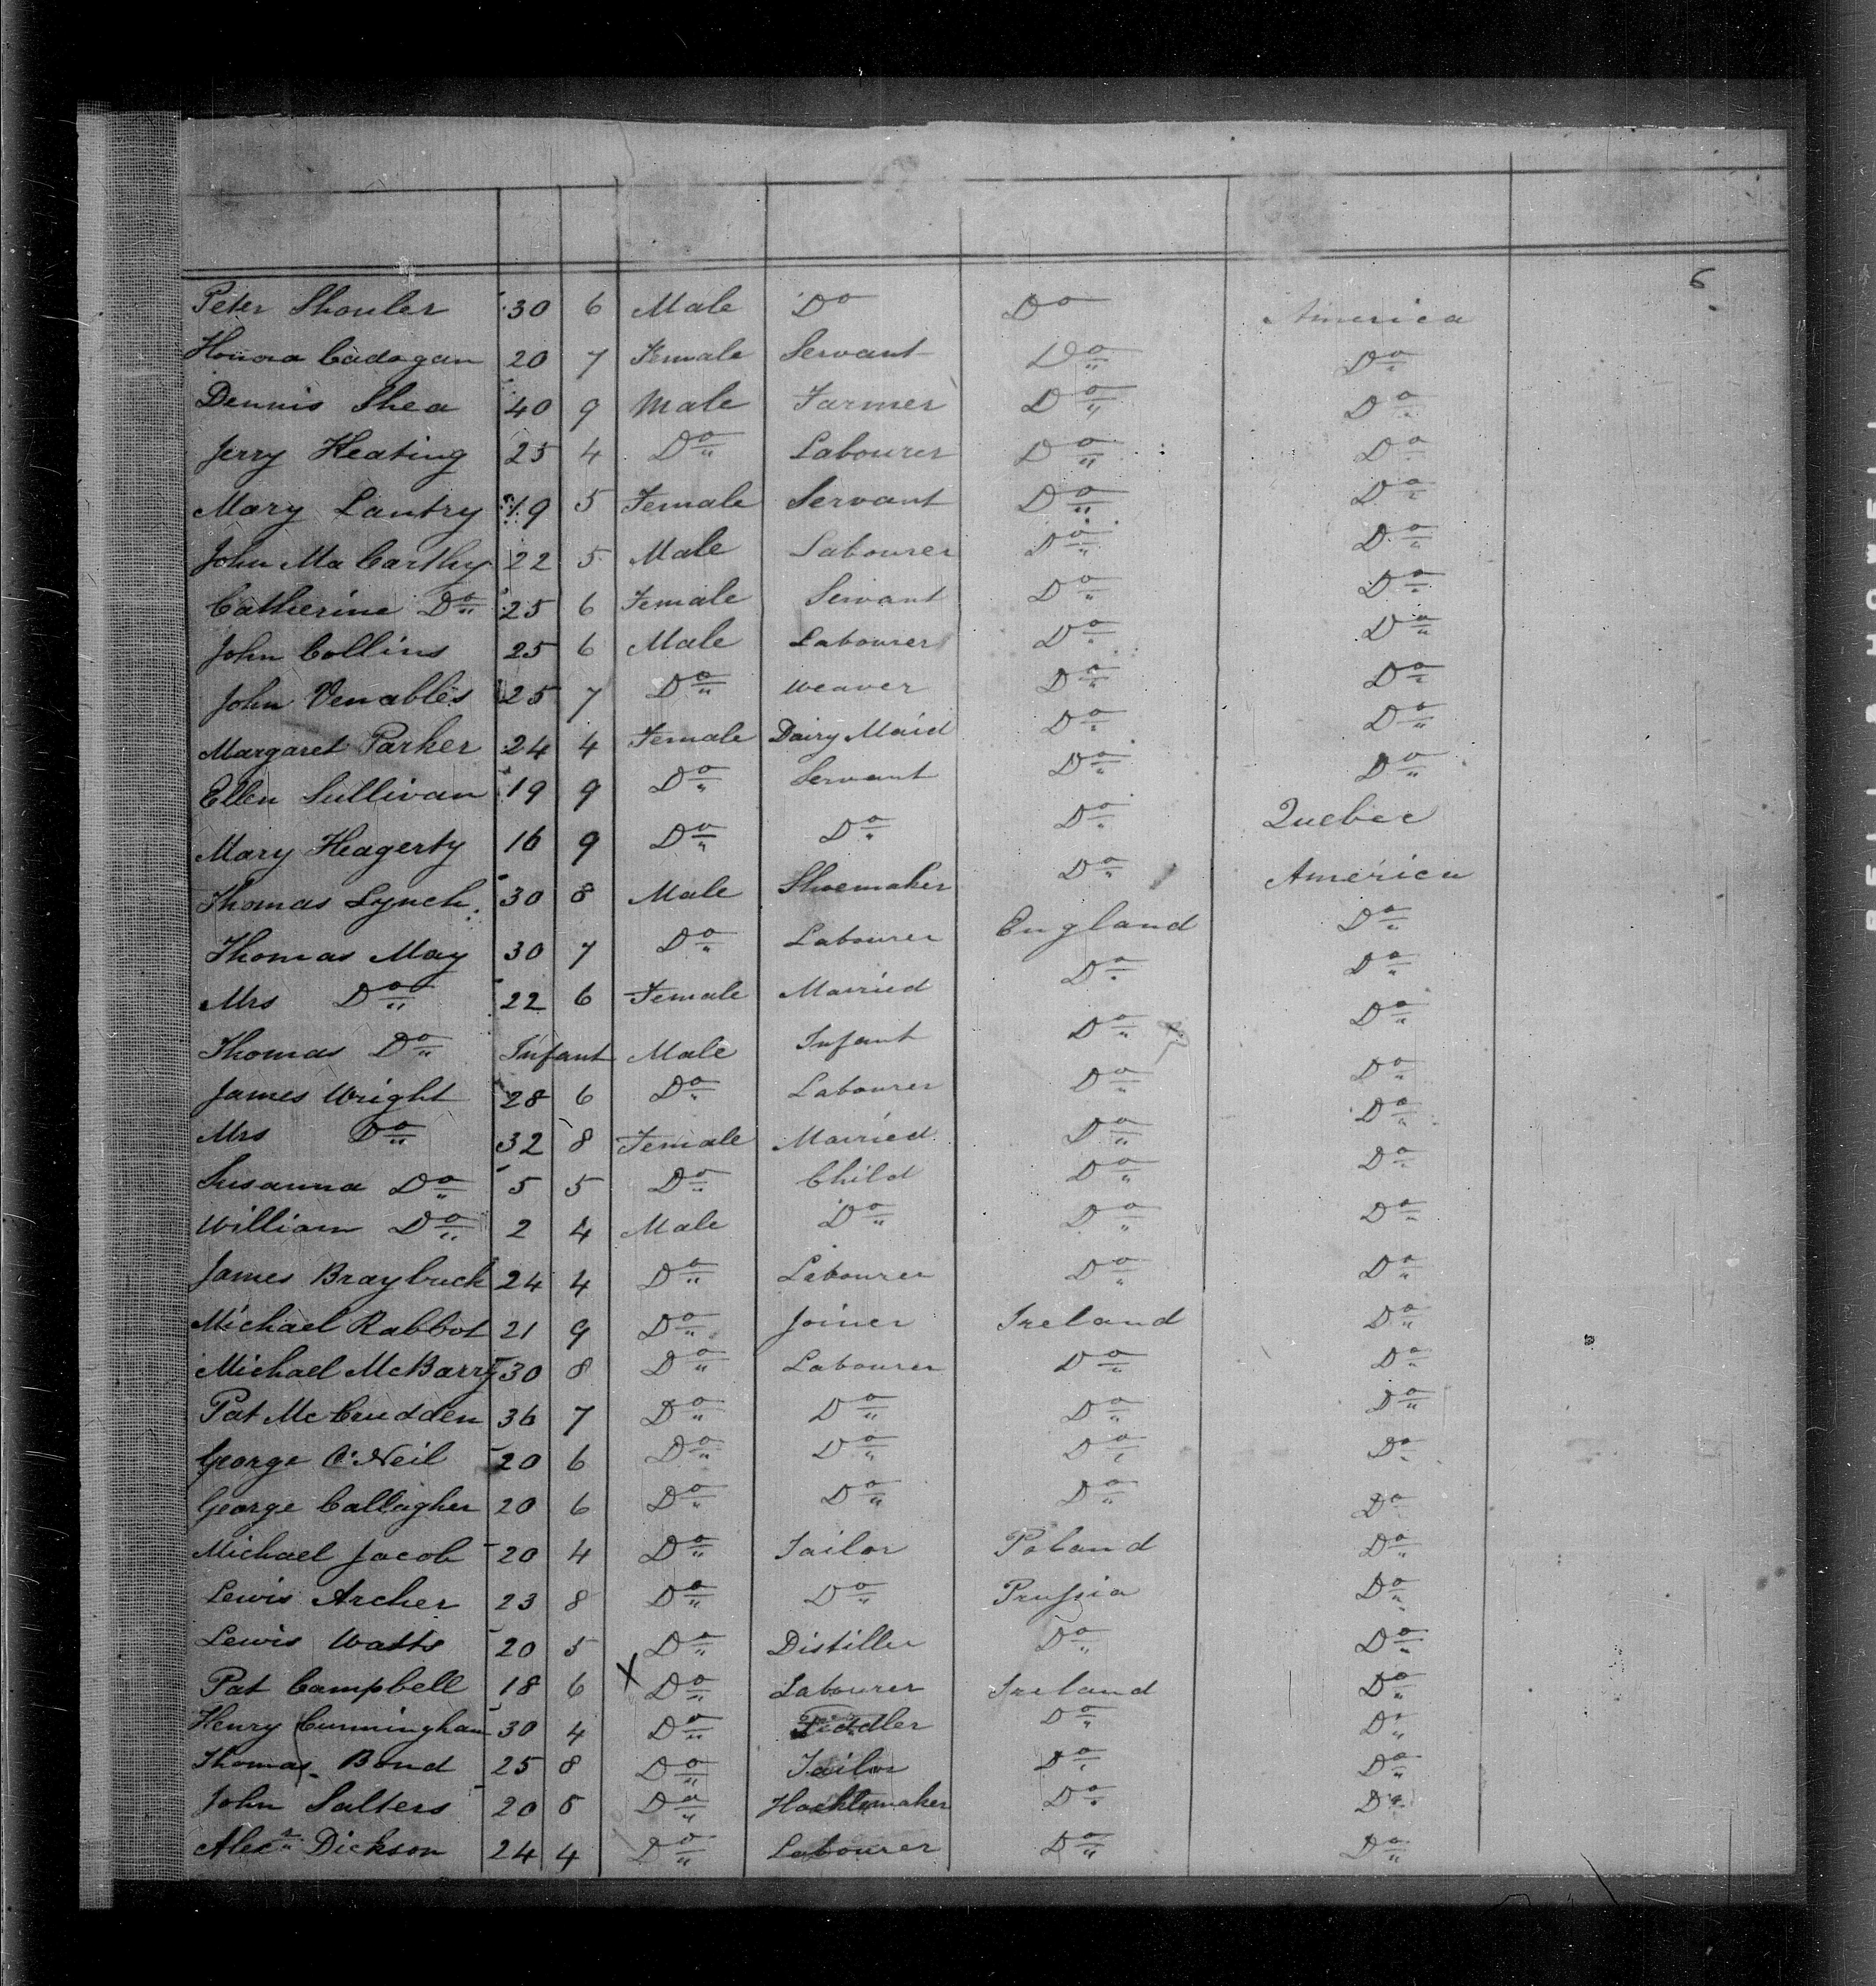 6
Peter Shouler 30 6 Male Do Do America
Honora Cadogan 20 7 Female Servant Do Do
Dennis Shea 40 9 Male Farmer Do Do
Jerry Keating 25 4 Do Labourer Do Do
Mary Lantry 19 5 Female Servant Do Do
John Ma Carthy 22 5 Male Labourer Do Do
Catherine Do 25 6 Female Servant Do Do
John Collins 25 6 Male Labourer Do Do
John Venables 25 7 Do Weaver Do Do
Margaret Parker 24 4 Female Dairy Maid Do Do
Ellen Sullivan 19 9 Do Servant Do Do
Mary Heagerty 16 9 Do Do Do Quebec
Thomas Lynch 30 8 Male Shoemaker Do America
Thomas May 30 7 Do Labourer England Do
Mrs Do 22 6 Female Married Do Do
Thomas Do Infant Male Infant Do Do
James Wright 28 6 Do Labourer Do Do
Mrs Do 32 8 Female Married Do Do
Susanna Do 5 5 Do Child Do Do
William Do 2 4 Male Do Do Do
James Braybuck 24 4 Do Labourer Do Do
Michael Rabbot 21 9 Do Joiner Ireland Do
Michael McBarry 30 8 Do Labourer Do Do
Pat McCrudden 36 7 Do Do Do Do
George O'Neil 20 6 Do Do Do Do
George Callagher 20 6 Do Do Do Do
Michael Jacob 20 4 Do Tailor Poland Do
Lewis Archer 23 8 Do Do Prussia Do
Lewis Watts 20 5 Do Distiller Do Do
Pat Campbell 18 6 X Do Labourer Ireland Do
Henry Cunningham 30 4 Do Fiddler Do Do
Thomas Bond 25 8 Do Tailor Do Do
John Salters 20 5 Do Do Do
Alexr Dickson 24 4 Do Labourer Do Do